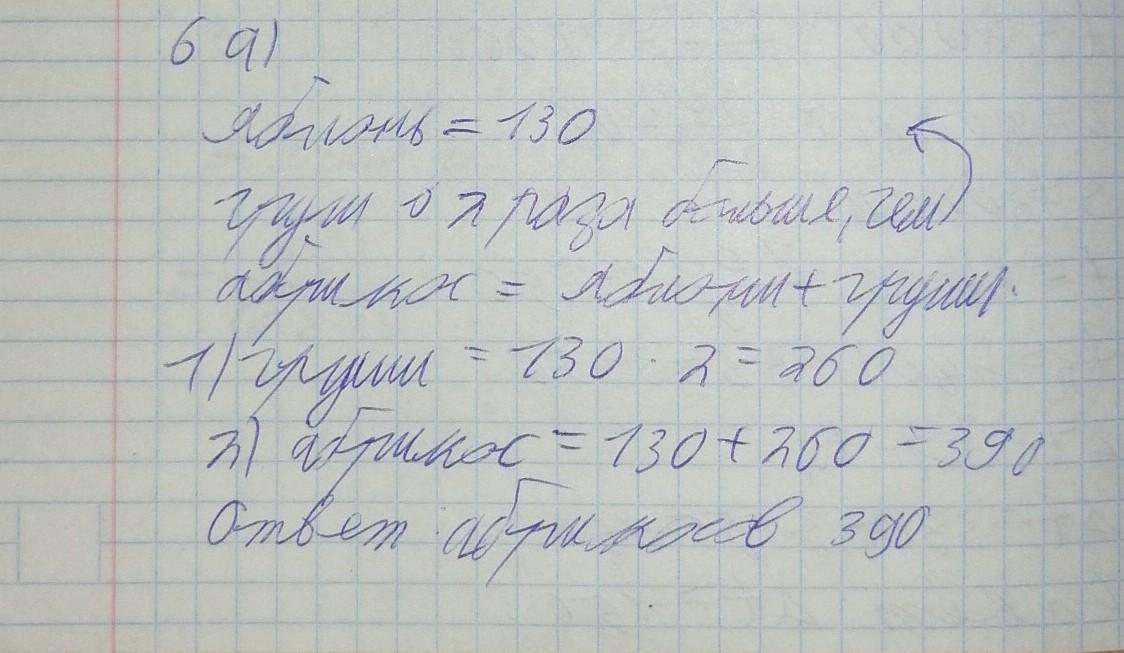 6 а)
яблонь = 130
груш в 2 раза больше, чем
абрикос = яблони + груши.
1) груши = 130 · 2 = 260
2) абрикос = 130 + 260 = 390
Ответ: абрикосов 390